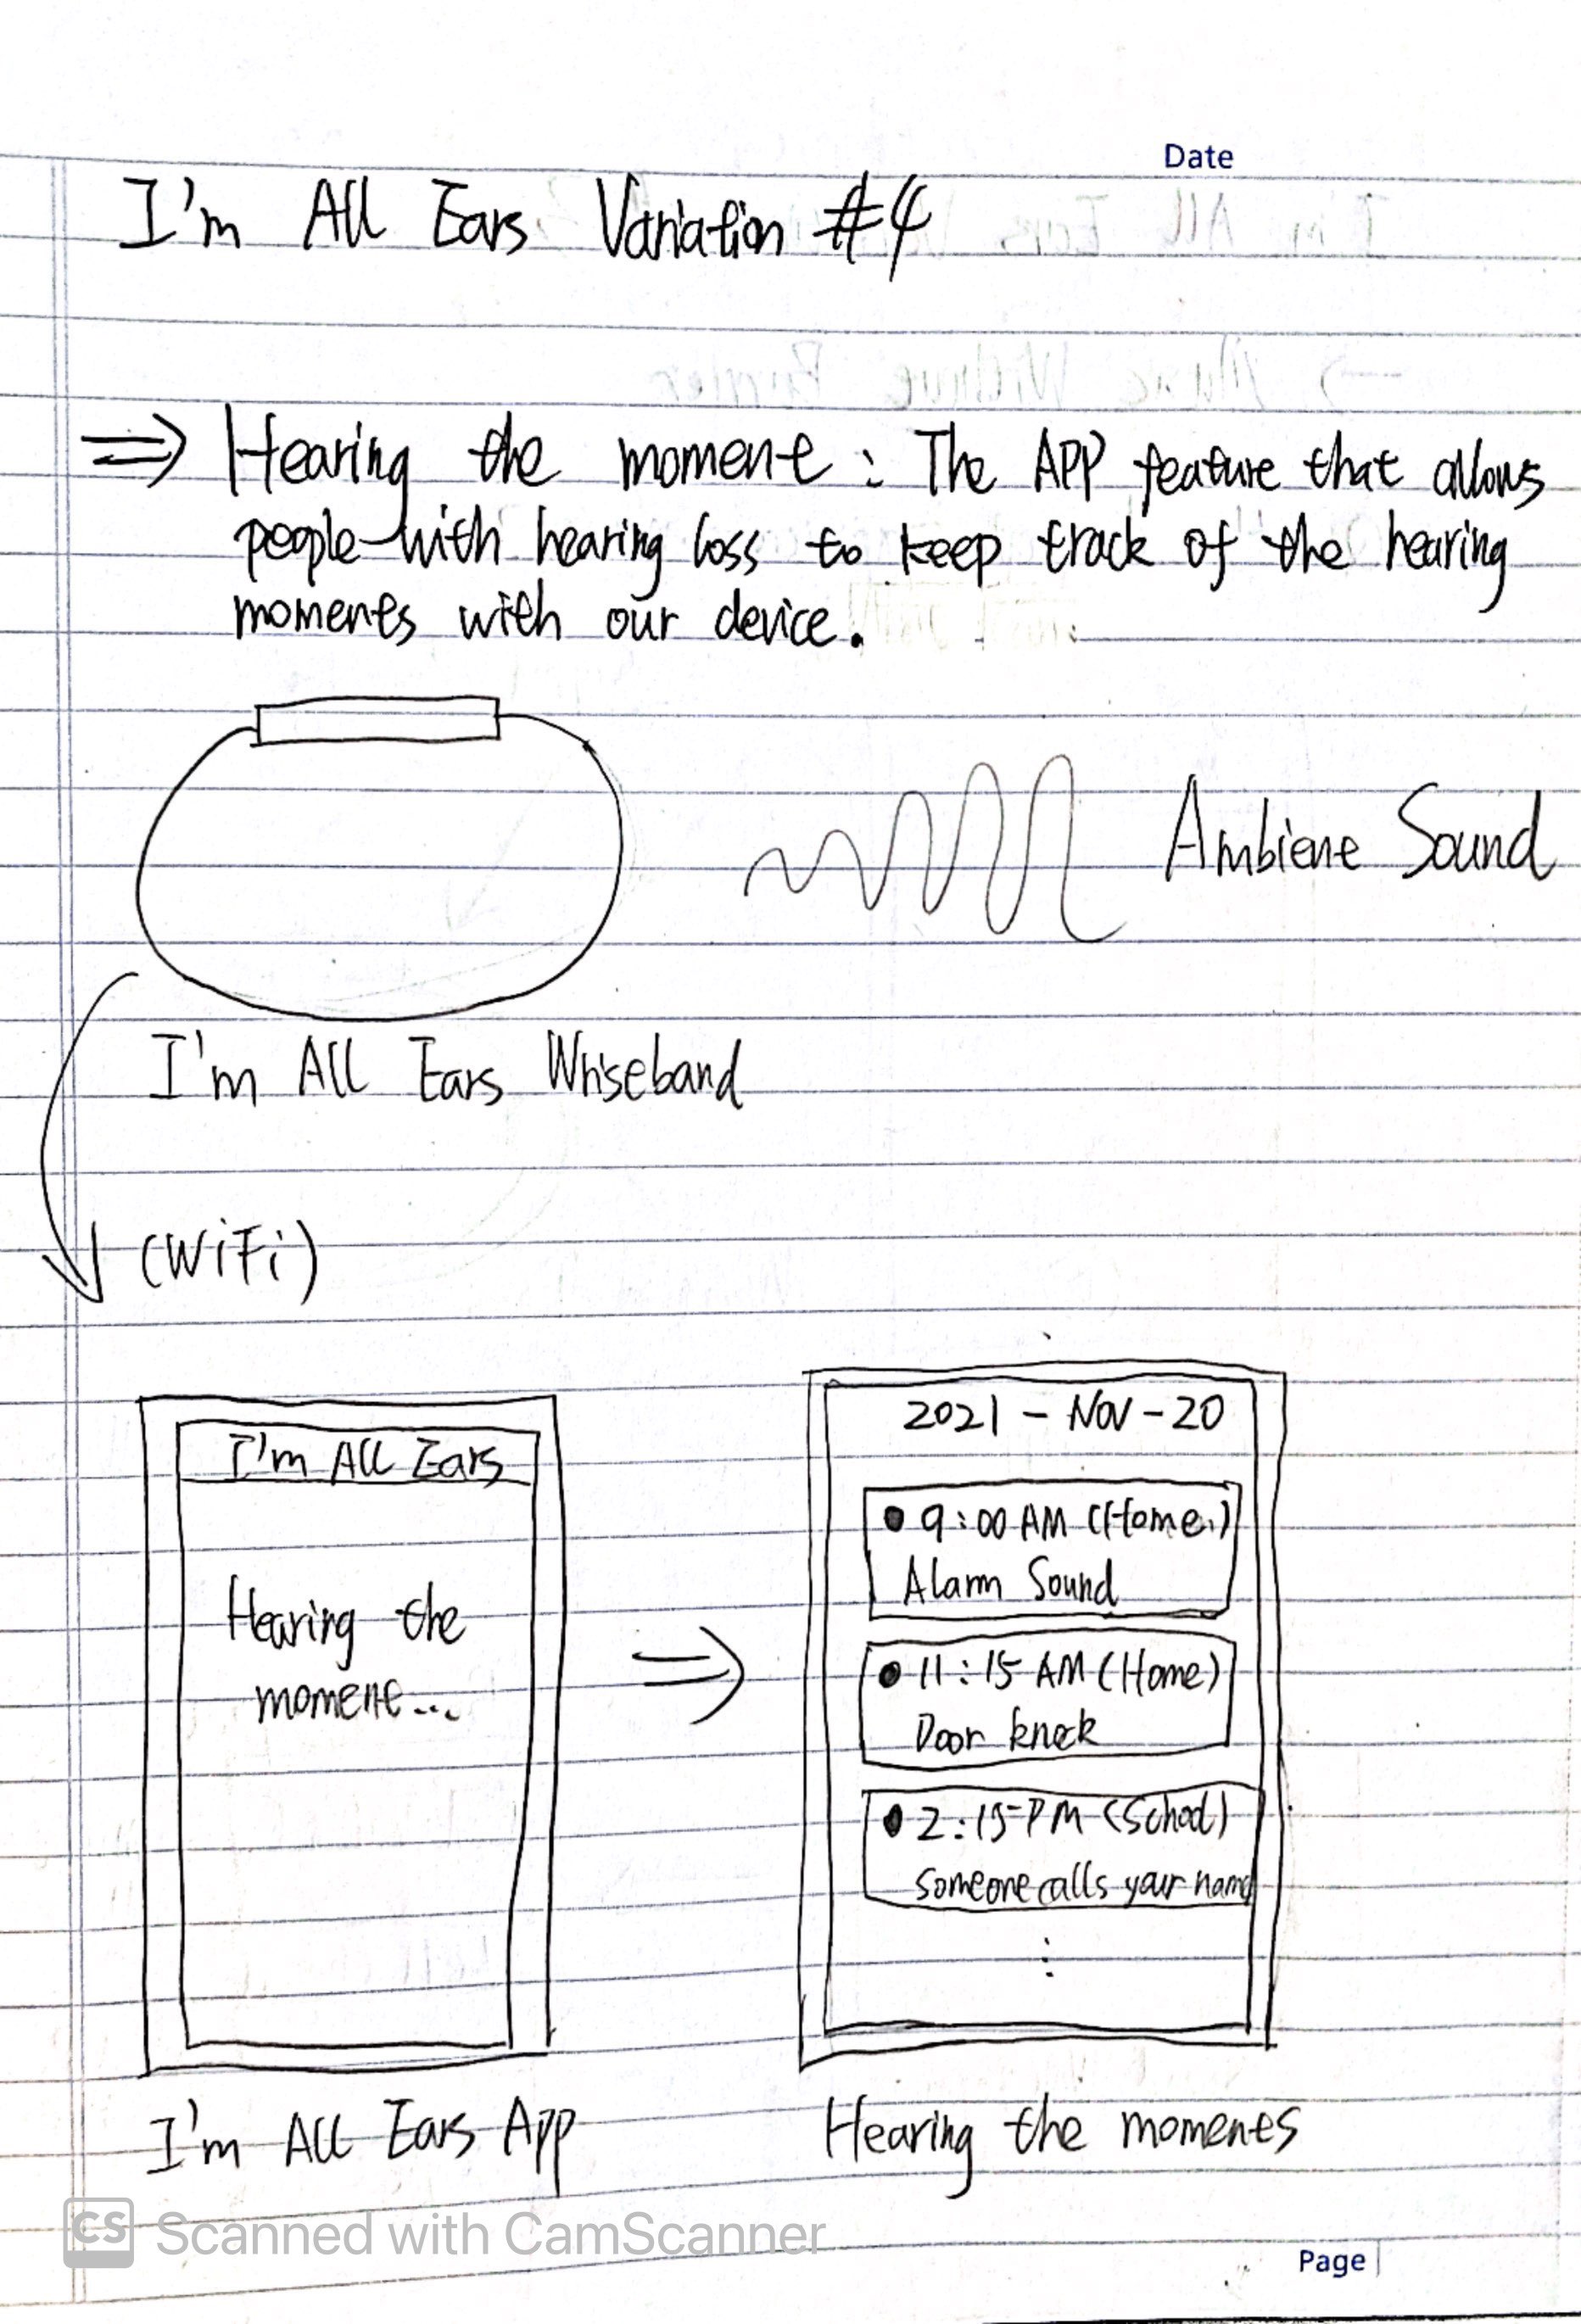 Date
I'm All Ears Variation #4
⇒ Hearing the moment : The APP feature that allows
people with hearing loss to keep track of the hearing
moments with our device.
Ambient Sound
I'm All Ears Wristband
(WiFi)
I'm All Ears
Hearing the
moment...
⇒
2021 - Nov - 20
• 9:00 AM (Home)
Alarm Sound
• 11:15 AM (Home)
Door knock
• 2:15 PM (School)
Someone calls your name
⋮
I'm All Ears App
Hearing the moments
CS Scanned with CamScanner
Page